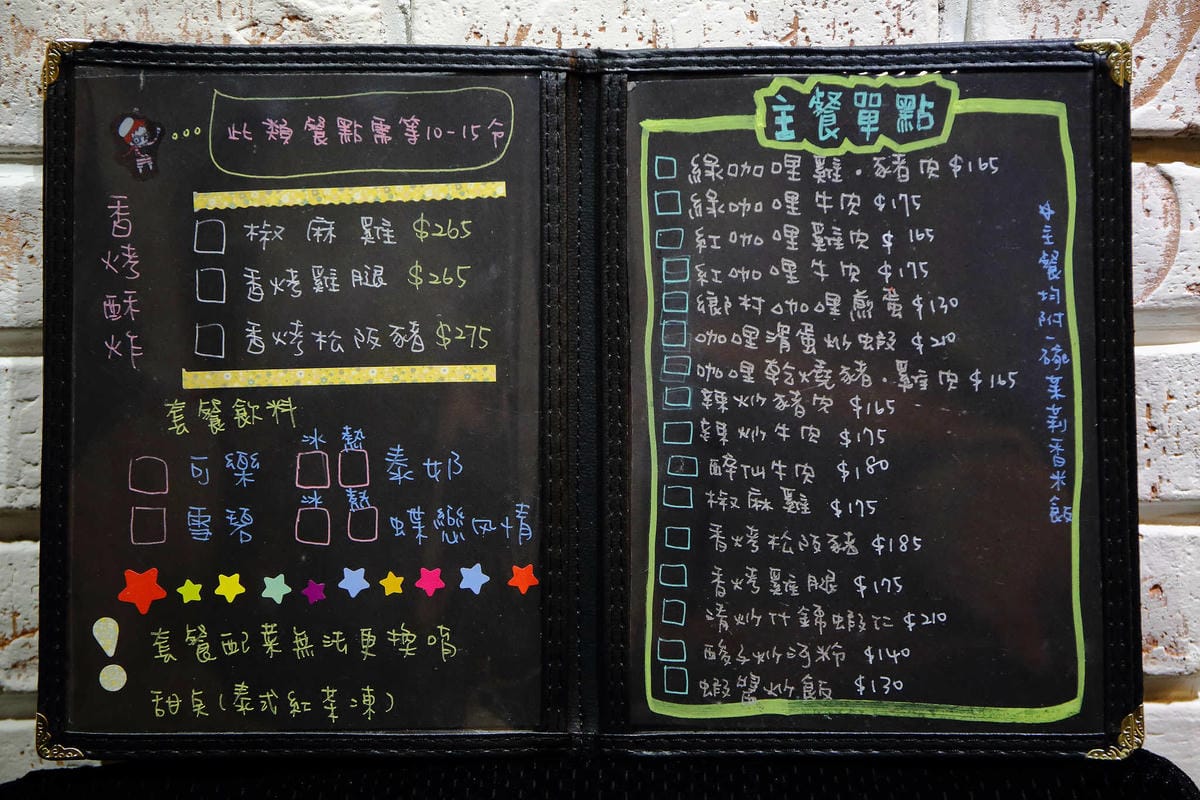 此類餐點需等10-15分
香烤酥炸
椒麻雞 $265
香烤雞腿 $265
香烤松阪豬 $275
套餐飲料
冰 熱
可樂 泰奶
冰 熱
雪碧 蝶戀风情
套餐配菜無法更換唷
甜点(泰式紅茶凍)
主餐單點
綠咖哩雞.豬肉 $165
綠咖哩牛肉 $175
紅咖哩雞肉 $165
紅咖哩牛肉 $175
鄉村咖哩煎蛋 $130
咖哩滑蛋炒蝦 $210
咖哩乾燒豬.雞肉 $165
辣炒豬肉 $165
辣炒牛肉 $175
醉仙牛肉 $180
椒麻雞 $175
香烤松阪豬 $185
香烤雞腿 $175
清炒什錦蝦仁 $210
酸子炒河粉 $140
蝦醬炒飯 $130
*主餐均附一碗茉莉香米飯